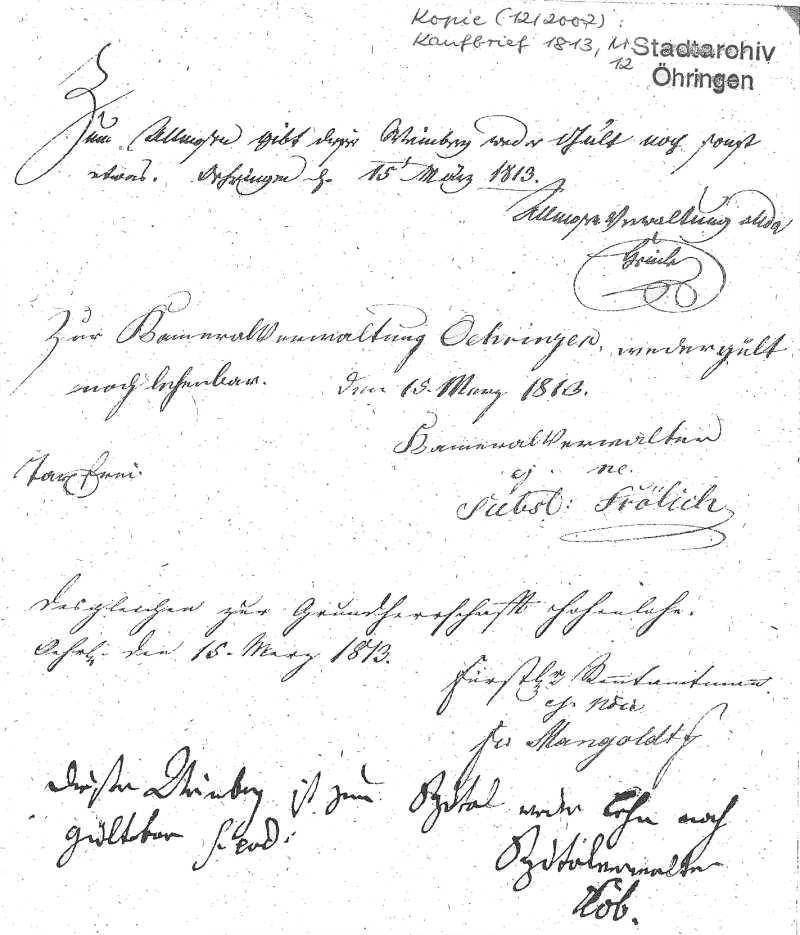 Kopie (12/2002):
Kaufbrief 1813, M
12
Stadtarchiv
Öhringen
Zum Allmosen gibt dieser Weinberg weder Gült noch sonst
etwas. Oehringen d. 15 März 1813.
Allmosen Verwaltung
Zur KameralVerwaltung Oehringen, weder gült
noch lehenbar. den 15. Merz 1813.
KameralVerwalter
ej. ne.
Tax frei.
Subst: Frölich
Desgleichen zur Grundherrschafft Hohenlohe.
Oehr. den 15. Merz 1813.
Fürstl. Rentamtmann
ej. noie
Mangoldt
Dieser Weinberg ist zum Spital weder Lehn noch
gültbar s. eod:
Spitalverwalter
Köb.